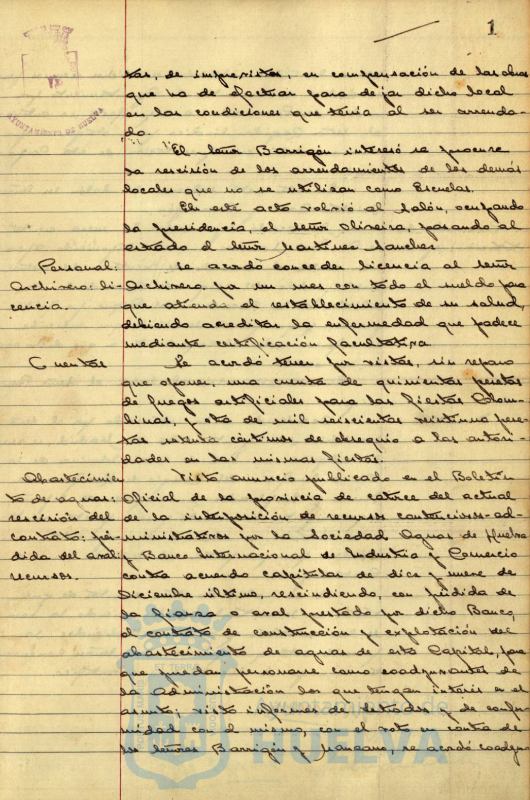 1
tas, de imprevistos, en compensación de las obras
que ha de efectuar para dejar dicho local
en las condiciones que tenía al ser arrenda-
do.
El Señor Barrigón interesó se procure
la rescisión de los arrendamientos de los demás
locales que no se utilizan como Escuelas.
En este acto volvió al Salón, ocupando
la presidencia, el Señor Oliveira, pasando al
estrado el Señor Martínez Sánchez
Personal:
Archivero: li-
cencia.
Se acordó conceder licencia al Señor
Archivero, por un mes con todo el sueldo para
que atienda el restablecimiento de su salud,
debiendo acreditar la enfermedad que padece
mediante certificación facultativa.
Cuentas
Se acordó tener por vistas, sin reparo
que oponer, una cuenta de quinientas pesetas
de fuegos artificiales para las fiestas Colom-
binas, y otra de mil seiscientas veintiuna pese-
tas setenta céntimos de obsequio a las autori-
dades en las mismas fiestas.
Abastecimien
to de aguas:
rescisión del
contrato: pér-
dida del aval:
recursos.
Visto anuncio publicado en el Boletín
Oficial de la provincia de catorce del actual
de la interposición de recursos contencioso-ad-
ministrativos por la Sociedad Aguas de Huelva
y Banco Internacional de Industria y Comercio
contra acuerdo capitular de diez y nueve de
Diciembre último, rescindiendo, con pérdida de
la fianza o aval prestado por dicho Banco,
el contrato de construcción y explotación del
abastecimiento de aguas de esta Capital, para
que puedan personarse como coadyuvantes de
la Administración los que tengan interés en el
asunto; visto informes de Letrados y de confor-
midad con el mismo, con el voto en contra de
los señores Barrigón y Manzano, se acordó coadyu-
HUELVA